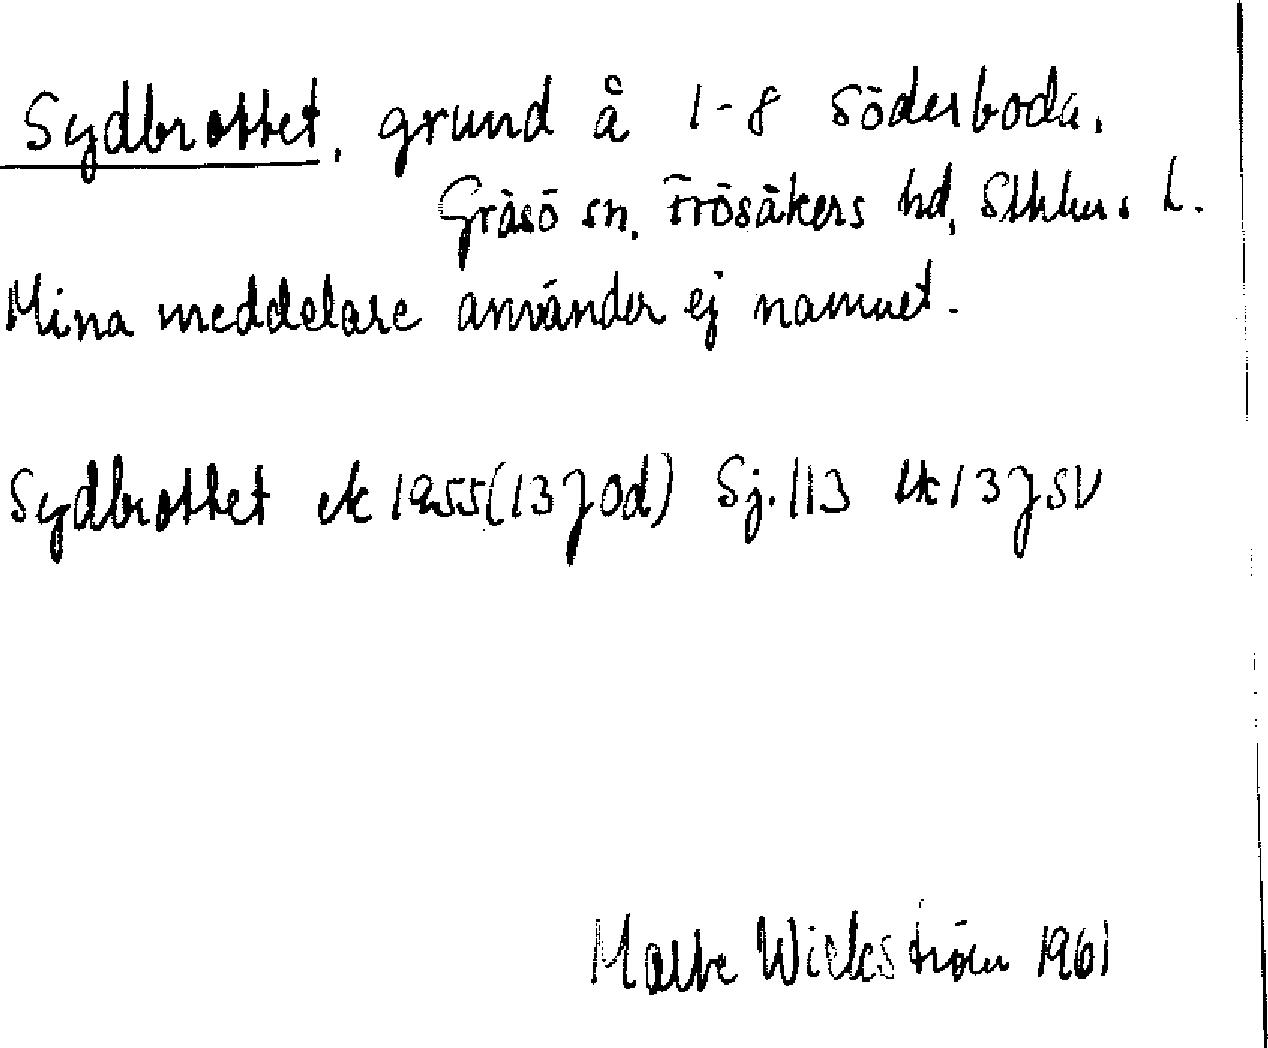 Sydbrottet, grund å 1-8 Söderboda,
Gräsö sn, Frösåkers hd, Sthlms l.
Mina meddelare använder ej namnet.
Sydbrottet ek 1955 (13 J Od) Sj. 113 ek 13 J SV
Wickström 1961